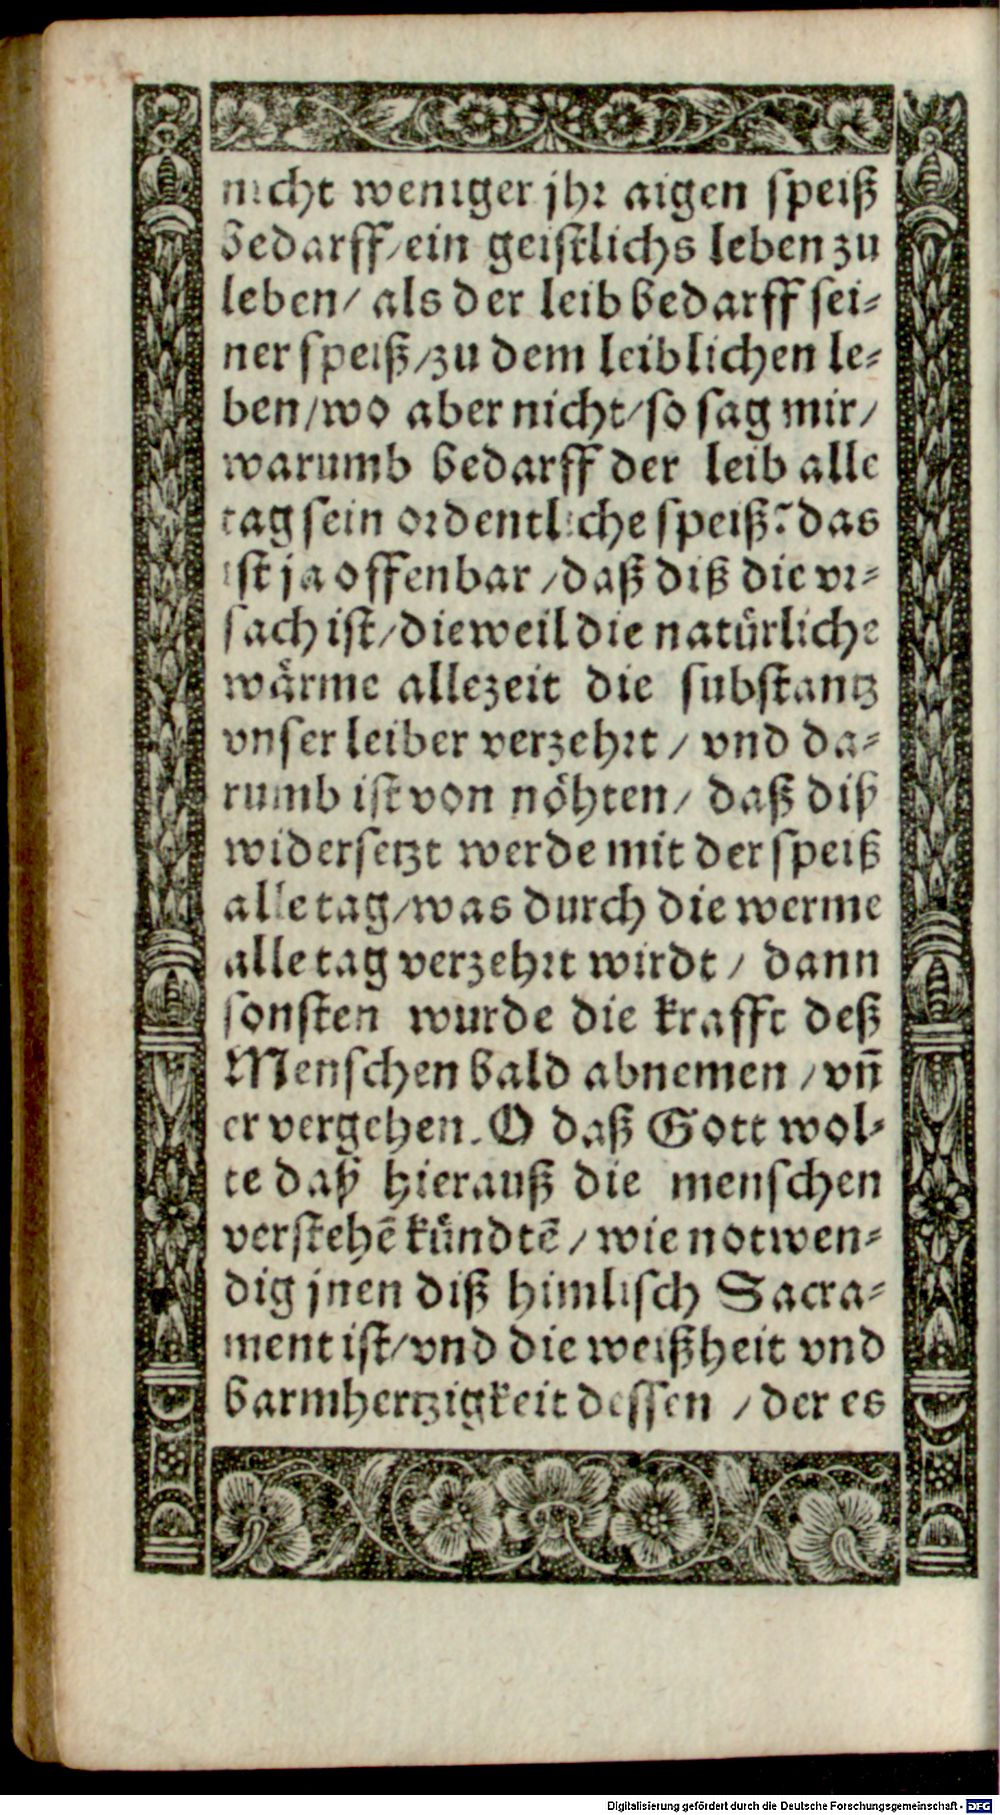 nicht weniger jhr aigen speiß
bedarff/ein geistlichs leben zu
leben/ als der leib bedarff sei-
ner speiß/zu dem leiblichen le-
ben/wo aber nicht/so sag mir/
warumb bedarff der leib alle
tag sein ordentliche speiß? das
ist ja offenbar/daß diß die vr-
sach ist/dieweil die natürliche
wärme allezeit die substantz
vnser leiber verzehrt/ vnd da-
rumb ist von nöhten/ daß diß
widersetzt werde mit der speiß
alle tag/was durch die werme
alle tag verzehrt wirdt/ dann
sonsten wurde die krafft deß
Menschen bald abnemen/vñ
er vergehen. O daß Gott wol-
te daß hierauß die menschen
verstehē kündtē/wie notwen-
dig jnen diß himlisch Sacra-
ment ist/vnd die weißheit vnd
barmhertzigkeit dessen/der es
Digitalisierung gefördert durch die Deutsche Forschungsgemeinschaft - DFG